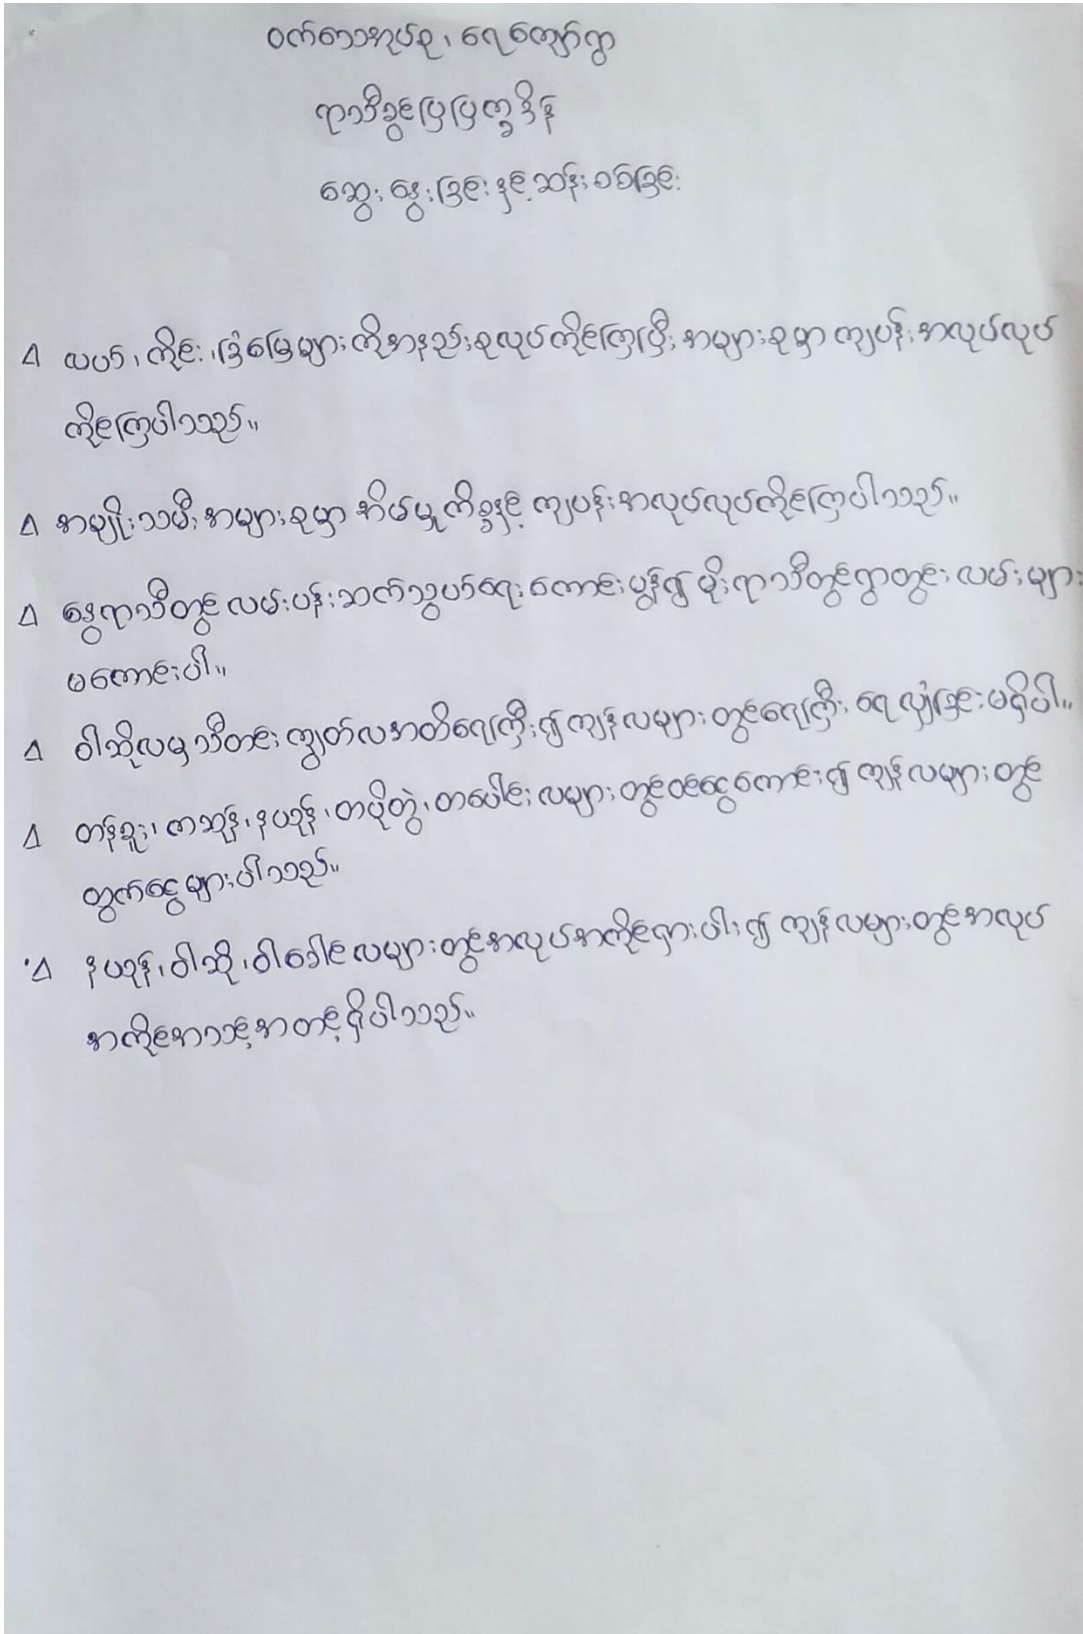 ဝက်တောအုပ်စု၊ ရေကျော်ရွာ
ရာသီခွင်ပြပြက္ခဒိန်
ဆွေးနွေးခြင်းနှင့်ဆန်းစစ်ခြင်း
Δ ယာ၊ ကိုင်း၊ ခြံမြေများကိုအနည်းစုလုပ်ကိုင်ကြပြီး အများစုမှာ ကျပန်းအလုပ်လုပ်
ကိုင်ကြပါသည်။
Δ အမျိုးသမီးအများစုမှာ အိမ်မှုကိစ္စနှင့် ကျပန်းအလုပ်လုပ်ကိုင်ကြပါသည်။
Δ နွေရာသီတွင် လမ်းပန်းဆက်သွယ်ရေးကောင်းမွန်၍ မိုးရာသီတွင်ရွာတွင်းလမ်းများ
မကောင်းပါ။
Δ ဝါဆိုလမှ သီတင်းကျွတ်လအထိရေကြီး၍ ကျန်လများတွင်ရေကြီး ရေလျှံခြင်းမရှိပါ။
Δ တန်ခူး၊ ကဆုန်၊ နယုန်၊ တပို့တွဲ၊ တပေါင်းလများတွင်ဝင်ငွေကောင်း၍ ကျန်လများတွင်
ထွက်ငွေများပါသည်။
Δ နယုန်၊ ဝါဆို၊ ဝါခေါင်လများတွင်အလုပ်အကိုင်ရှားပါး၍ ကျန်လများတွင်အလုပ်
အကိုင်အသင့်အတင့်ရှိပါသည်။